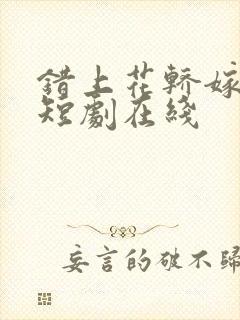 错上花轿嫁
短劇在綫
妄言的破不歸